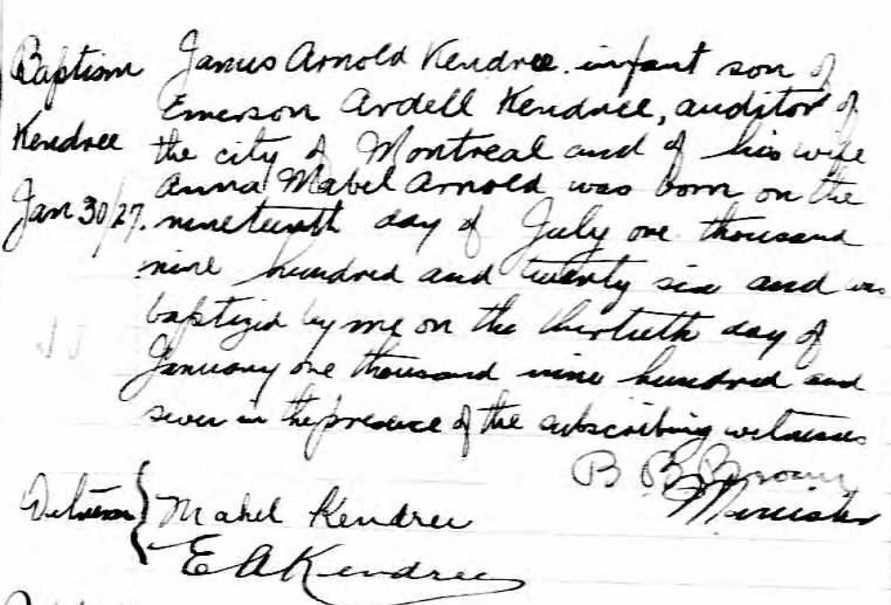 Baptism
Kendree
Jan 30/27.
James Arnold Kendree infant son of
Emerson Ardell Kendree, auditor of
the city of Montreal and of his wife
Anna Mabel Arnold was born on the
nineteenth day of July one thousand
nine hundred and twenty six and was
baptized by me on the thirtieth day of
January one thousand nine hundred and
seven in the presence of the subscribing witnesses
B B Brown
Minister
Mabel Kendree
E A Kendree